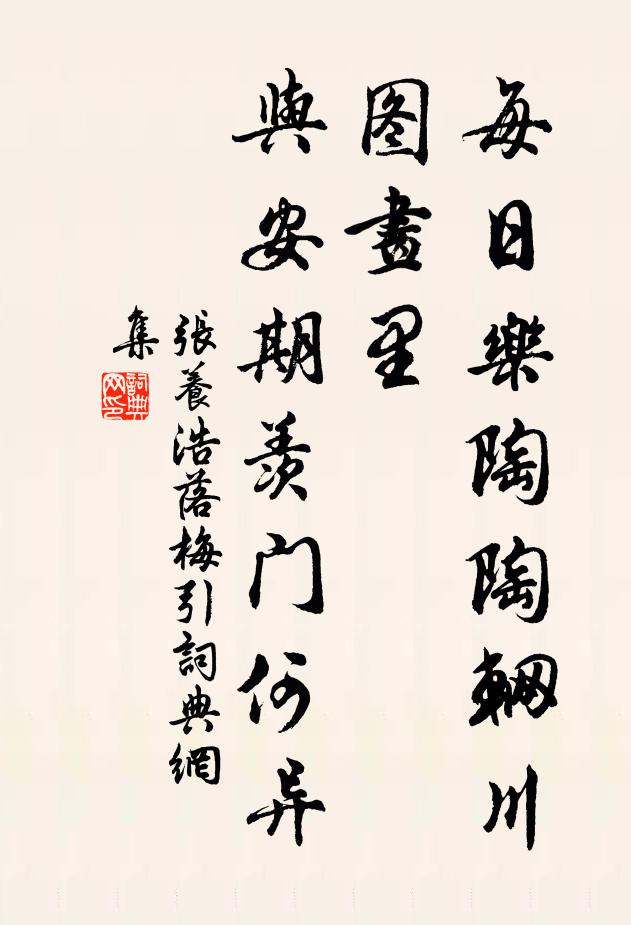 每日樂陶陶輞川
图畫里
與安期羨门何异
張養浩落梅引詞典網
集
詞典网印